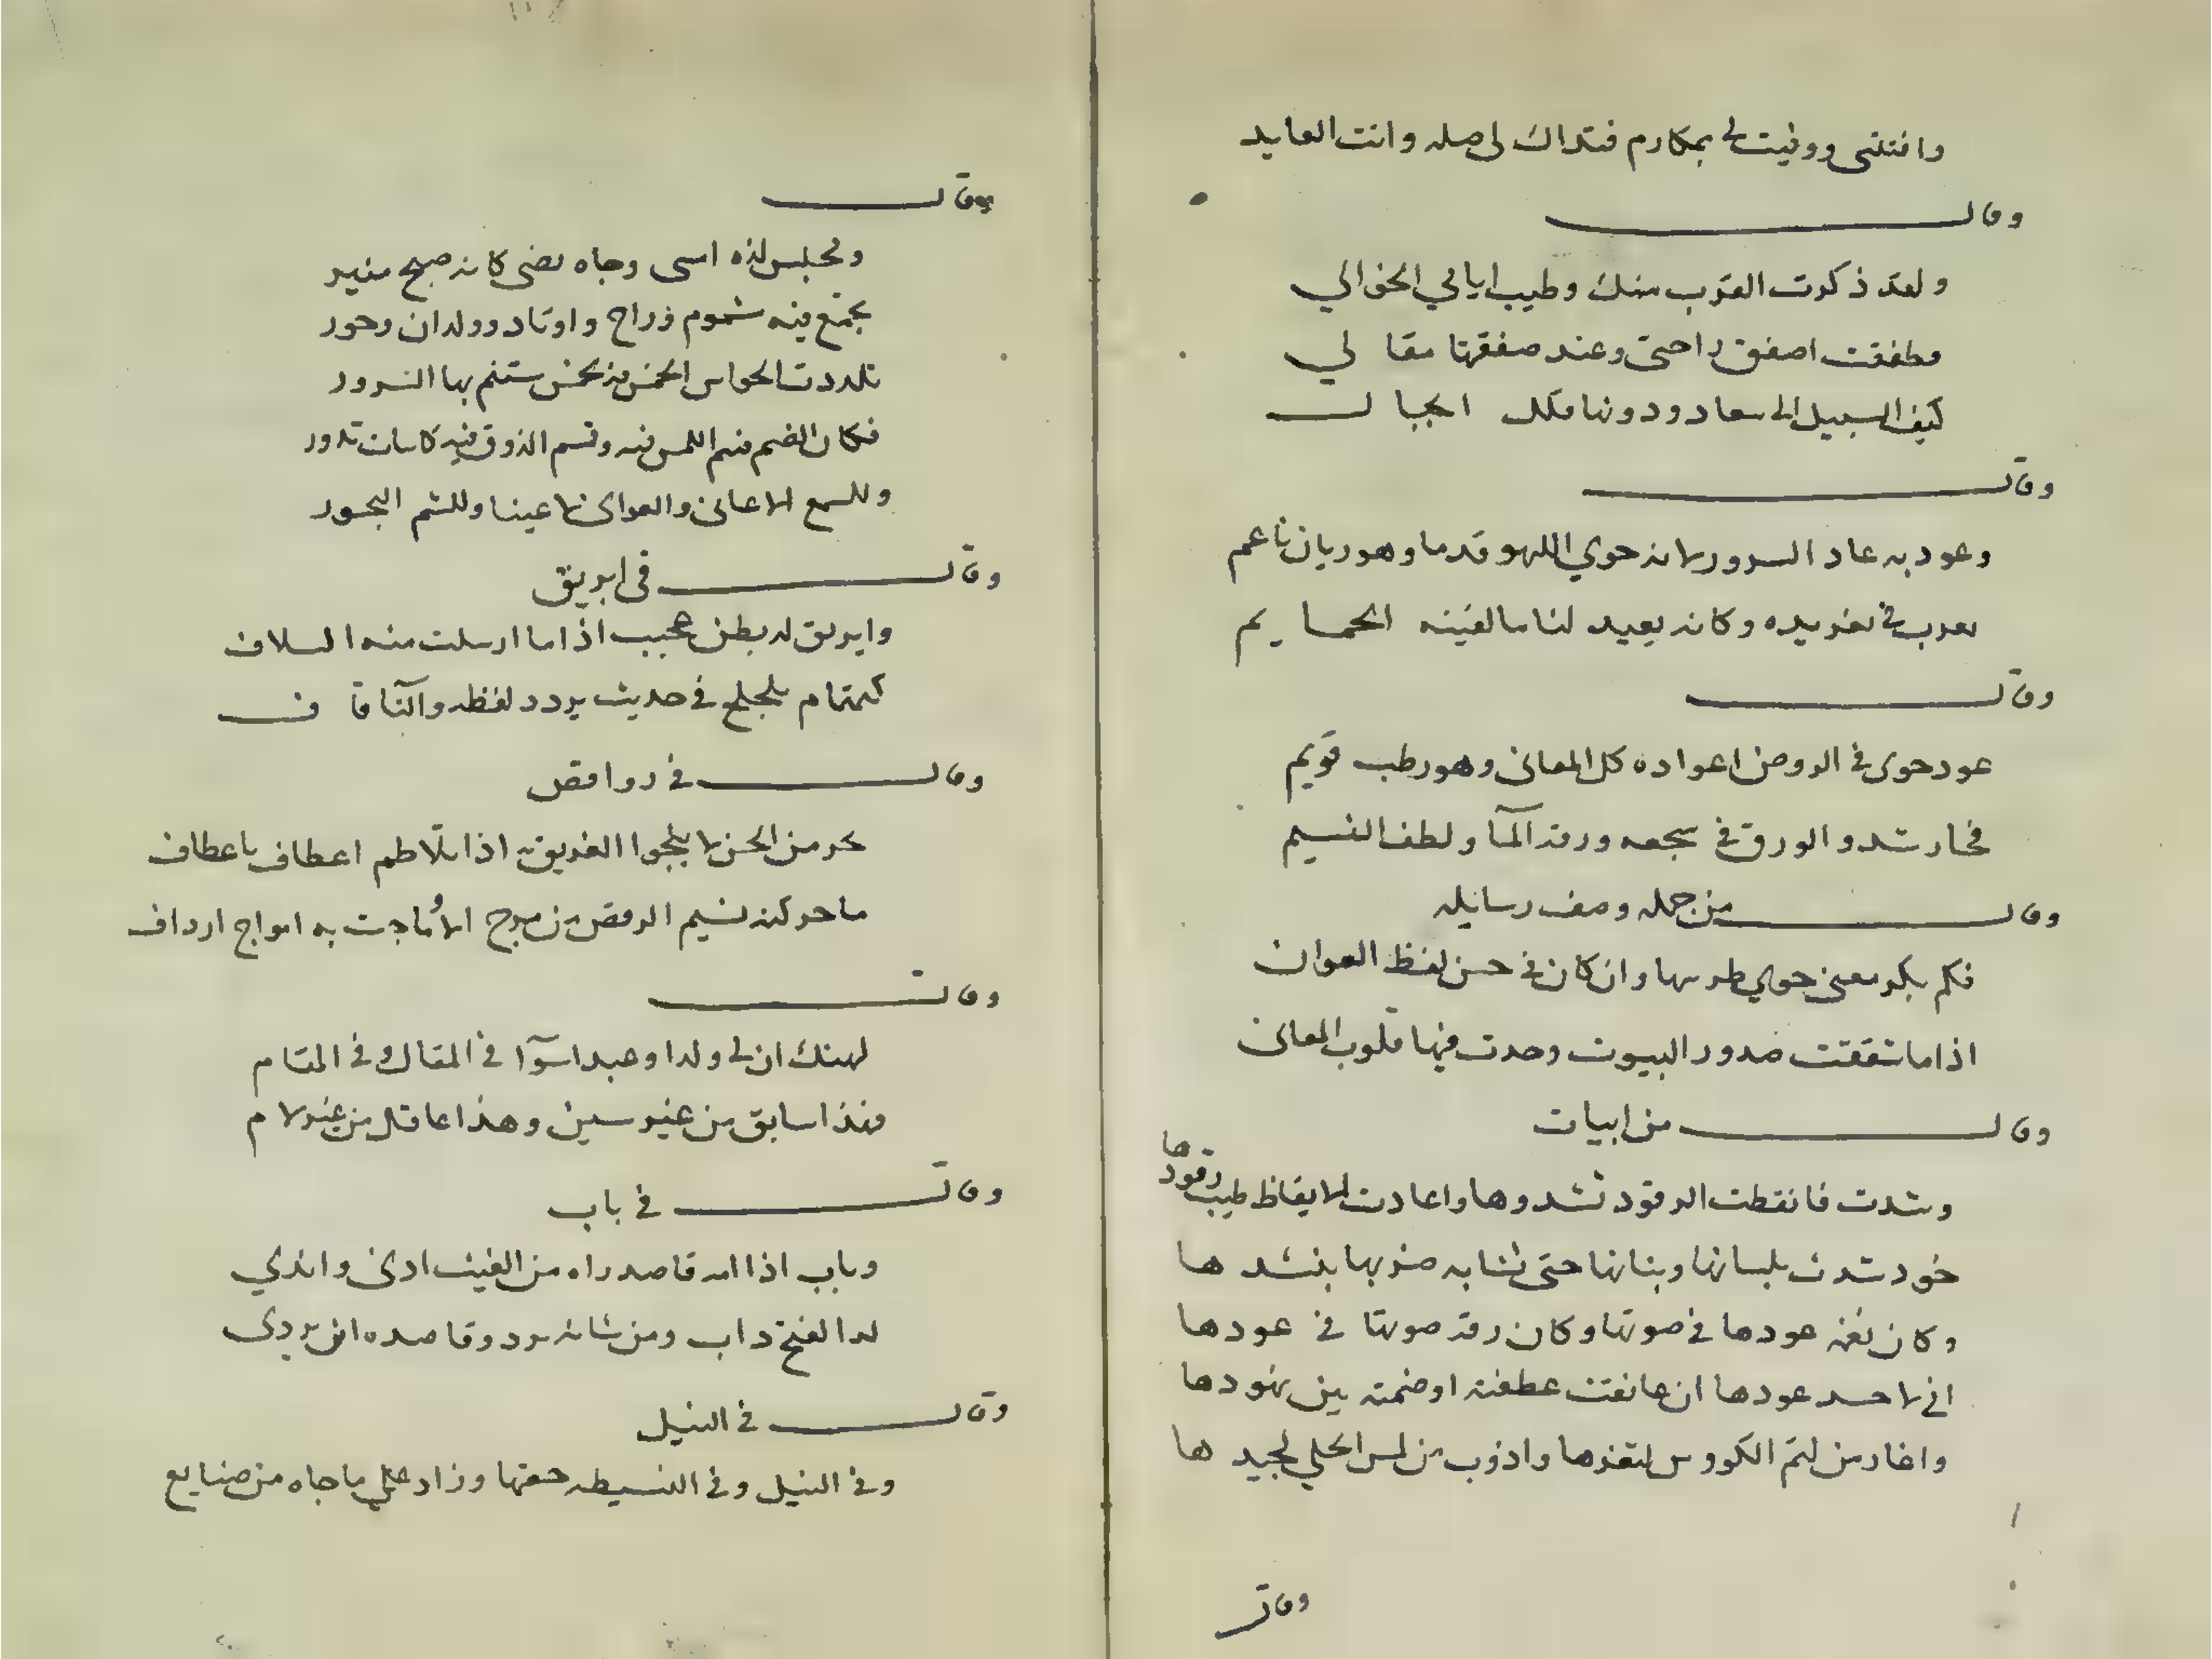 وافتتني ووفيت لي بمكارم فتداك لي صله وانت العايد
وقال
ولقد ذكرت القرب منك وطيب ايالي الخوالي
وطفقت اصفق راحتي وعند صفقتها مقا لي
كيف السبيل الي سعاد ودونها فلل الجبال
وقال
وعود به عاد السرور لانه حوي اللهو قدما وهو ريان ناعم
يعرب في تغريده وكانه يعيد لنا ما لقينه الحمايم
وقال
عود حوى في الروض اعواده كل المعاني وهو رطب قويم
فحار شدو الورق في سجعه ورقة المآ ولطف النسيم
وقال من جمله وصف رسايله
فكم بكر معنى حوي طرسها وان كان في حسن لفظ العوان
اذا ما شققت صدور البيوت وجدت فيها قلوب المعاني
وقال من ابيات
وشدت فانقطت الرقود بشدوها واعادت الايقاظ طيب رقودها
خود شدت بلسانها وبنانها حتى تشابه ضربها بنشدها
وكان نغمة عودها في صوتها وكان رقة صوتها في عودها
اني لاحسد عودها ان عانقت عطفته او ضمته بين نهودها
واغار من لثم الكووس لثغرها واذوب من لمس الحلي لجيدها
وقال
وقال
ومجلس لذه امسى وجاه يضي كانه صبح منير
تجمع فيه شموم وراح واوتاد وولدان وحور
تلذذت الحواس الخمس منه بخمس ستنم بها السرور
فكان الضم قسم اللمس فيه وقسم الذوق فيه كاسات تدور
وللسمع الاغاني والغواني لاعيننا وللشم البخور
وقال في ابريق
وابريق له بطن عجيب اذا ما ارسلت منه السلاف
كتمتام تلجلج في حديث يردد لفظه والتآ قاف
وقال في رواقص
بحر من الحسن لا ينجوا الغريق به اذا تلاطم اعطاف باعطاف
ما حركته نسيم الرقص من مرح الا وماجت به امواج ارداف
وقال
لهنك ان لي ولدا وعبدا سوآ في المقال وفي المقام
فهذا سابق من غير سين وهذا عاقل من غير لام
وقال في باب
وباب اذا امه قاصد راه من الغيث ادنى واندي
له الفتح داب ومن شانه يرد وقاصده ان يردى
وقال في النيل
وفي النيل وفي البسيطه حقها وزاد علي ما جاه من صنايع